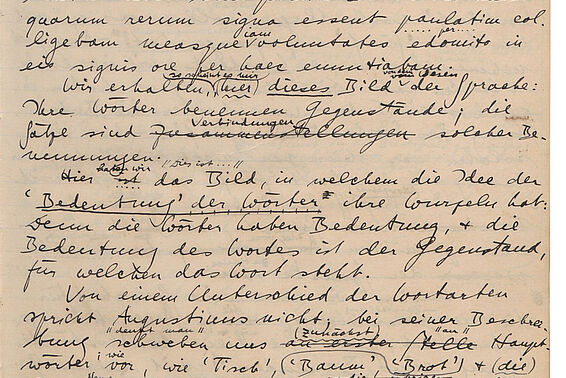 quarum rerum signa essent paulatim col-
ligebam measque iam voluntates edomito in
eis signis ore per haec enuntiabam.
Wir erhalten, so scheint es mir, (hier) dieses Bild von dem Wesen der Sprache:
Ihre Wörter benennen Gegenstände; die
Sätze sind Zusammenstellungen Verbindungen solcher Be-
nennungen.
Hier ist haben wir "Dies ist ...!" das Bild, in welchem die Idee der
'Bedeutung' der Wörter ihre Wurzeln hat:
Denn die Wörter haben Bedeutung, & die
Bedeutung des Wortes ist der Gegenstand,
für welchen das Wort steht.
Von einem Unterschied der Wortarten
spricht Augustinus nicht; bei seiner Beschrei-
bung "denkt man" schweben uns an erster Stelle (zunächst) "an" Haupt-
wörter vor, wie wie 'Tisch', 'Baum', 'Brot' & (die)